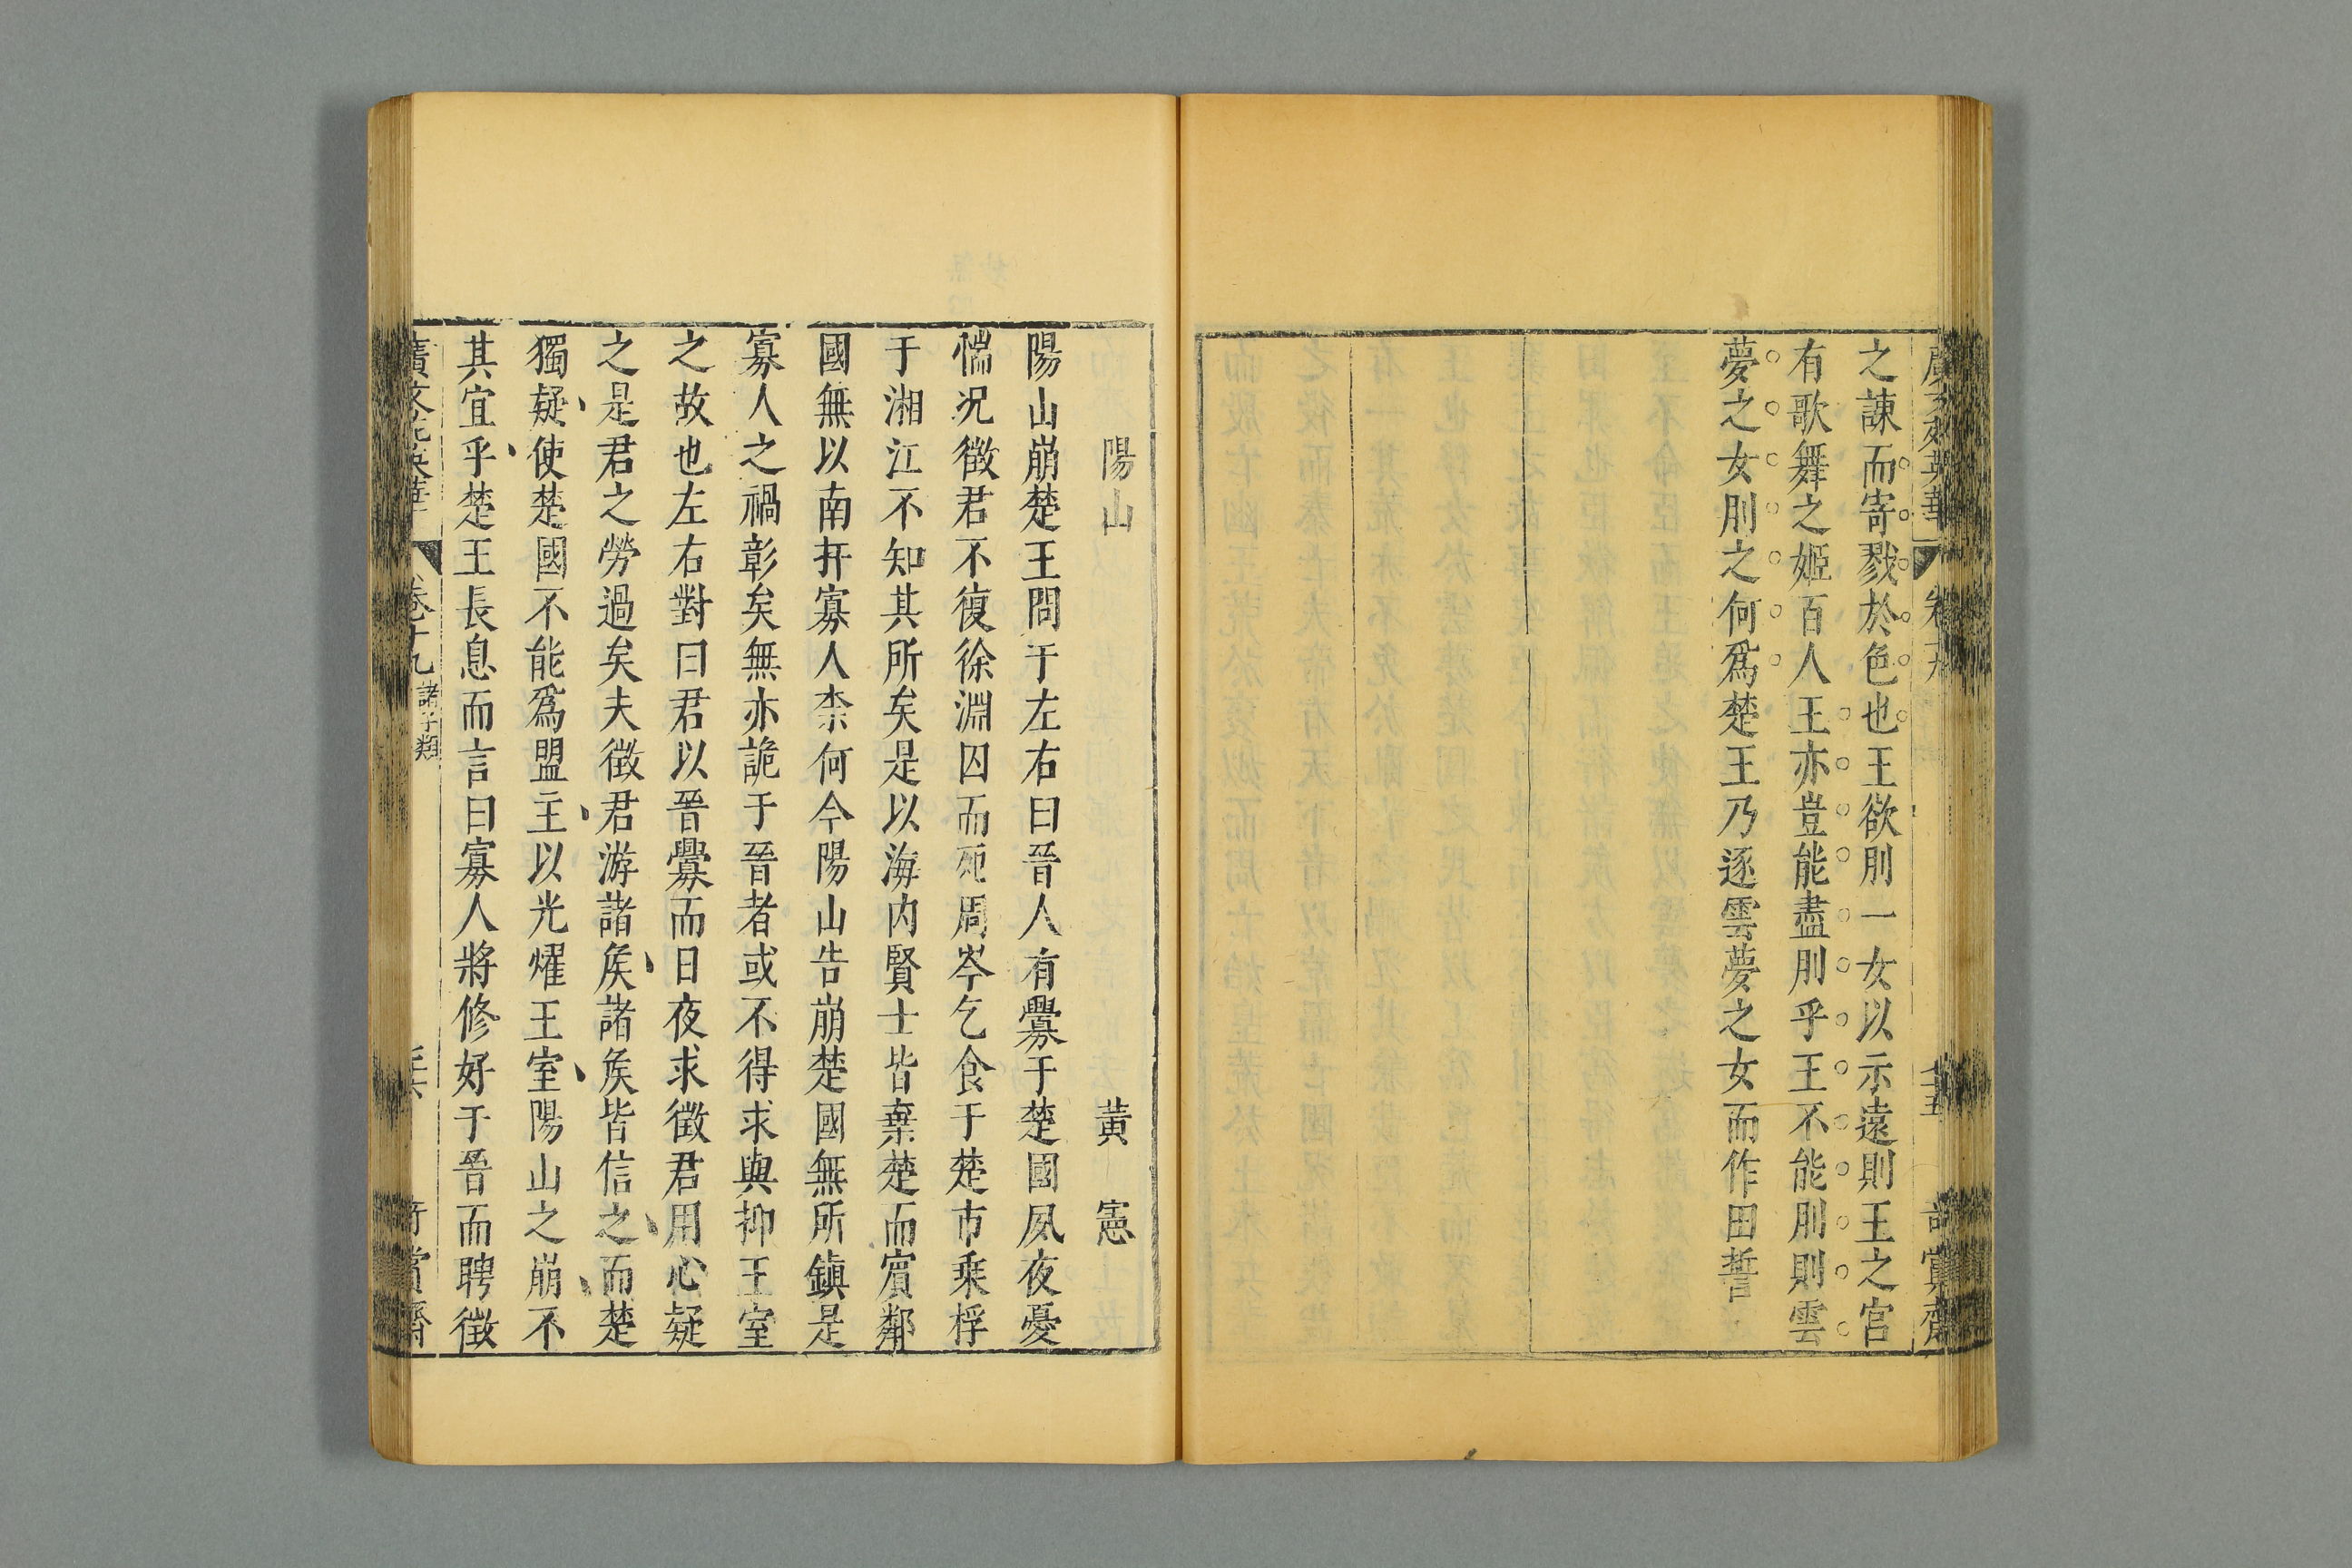 之諫而寄戮於色也王欲刖一女以示遠則王之宮
有歌舞之姬百人王亦豈能盡刖乎王不能刖則雲
夢之女刖之何爲楚王乃逐雲夢之女而作田誓
陽山 黃憲
陽山崩楚王問于左右曰晉人有釁于楚國夙夜憂
惴况徵君不復徐淵囚而死周岑乞食于楚市乘桴
于湘江不知其所矣是以海内賢士皆棄楚而賔鄰
國無以南扞寡人柰何今陽山告崩楚國無所鎮是
寡人之禍彰矣無亦詭于晉者或不得求與抑王室
之故也左右對曰君以晉釁而日夜求徵君用心疑
之是君之勞過矣夫徵君游諸矦諸矦皆信之而楚
獨疑使楚國不能爲盟主以光燿王室陽山之崩不
其宜乎楚王長息而言曰寡人將修好于晉而聘徵
卷十九 諸子類